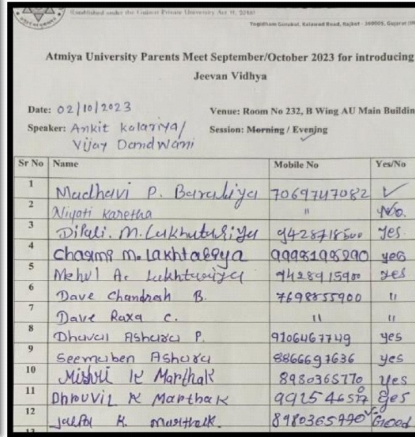 Established under the Gujarat Private University Act 11, 2018)
Yogidham Gurukul, Kalawad Road, Rajkot - 360005, Gujarat
Atmiya University Parents Meet September/October 2023 for introducing
Jeevan Vidhya
Date: 02/10/2023 Venue: Room No 232, B Wing AU Main Buildin
Speaker: Ankit Kolariya/ Session: Morning / Evening
Vijay Dandwani
Sr No Name Mobile No Yes/No
1 Madhavi P. 7069747082 ✓
2 Niyati " No.
3 Dipali. M. 9428718500 yes.
4 M. yes
5 Mehul A. 9428915900 yes
6 Dave Chandrah B. 7698855900 "
7 Dave Raxa C. " "
8 Dhaval Ashara P. 9106467749 yes
9 Seemaben Ashara 8866691636 yes
10 Mishri K Marthak 8980365770 yes
11 Dhruvil K Marthak yes
12 K. Marthak Good